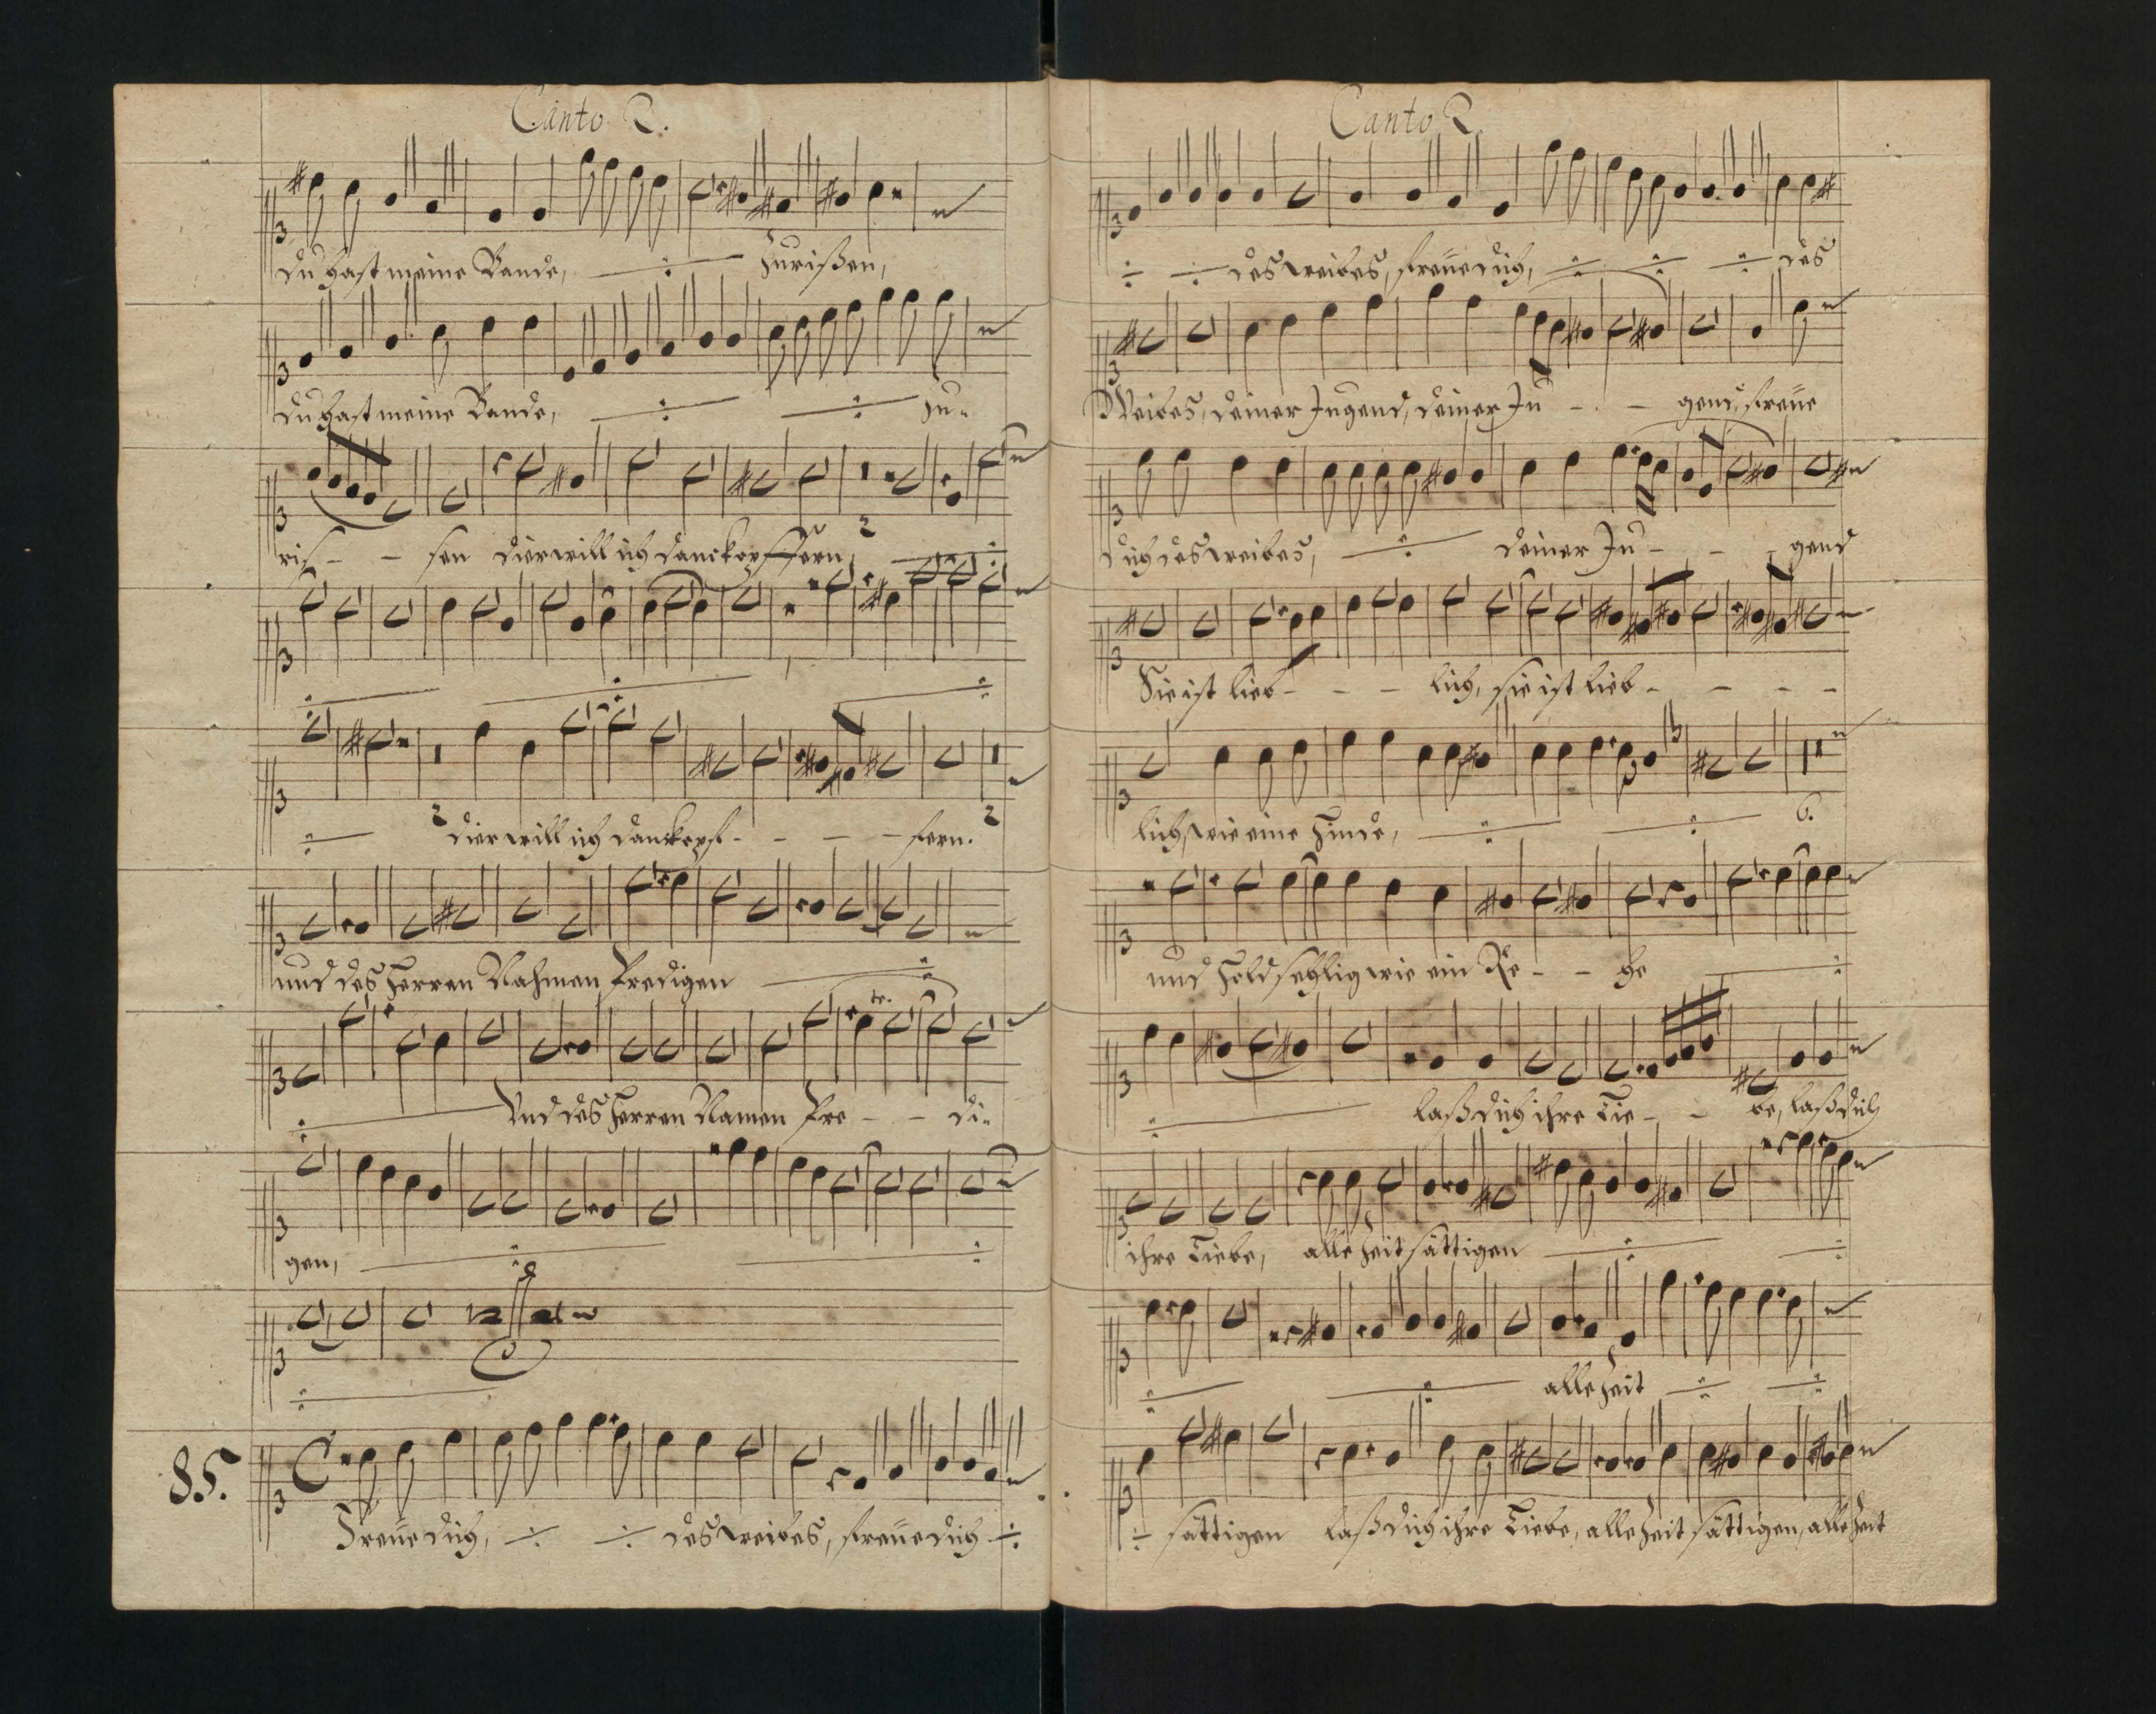 Canto 2.
du hast meine Bande, Zurißen,
du hast meine Bande, Zu-
ris- - sen dier will ich danck opffern,
2
2 dier will ich danck opf- - - - fern. 2
und des Herren Nahmen Predigen
tr.
Und des Herren Namen Pre - - di-
gen,
85.
Freue dich, des weibes, freue dich
Canto 2.
des weibes, freue dich, des
Weibes, deiner Jugend, deiner Ju - - gend, freue
dich des weibes, deiner Ju - - - gend
Sie ist lieb - - - lich, sie ist lieb - - - -
lich, wie eine Hinde, 6.
und Holdsehlig wie ein Re - - he
laß dich ihre Lie - - be, laß dich
ihre Liebe, alle Zeit sättigen
alle Zeit
sättigen laß dich ihre Liebe, alle Zeit sättigen, alle Zeit